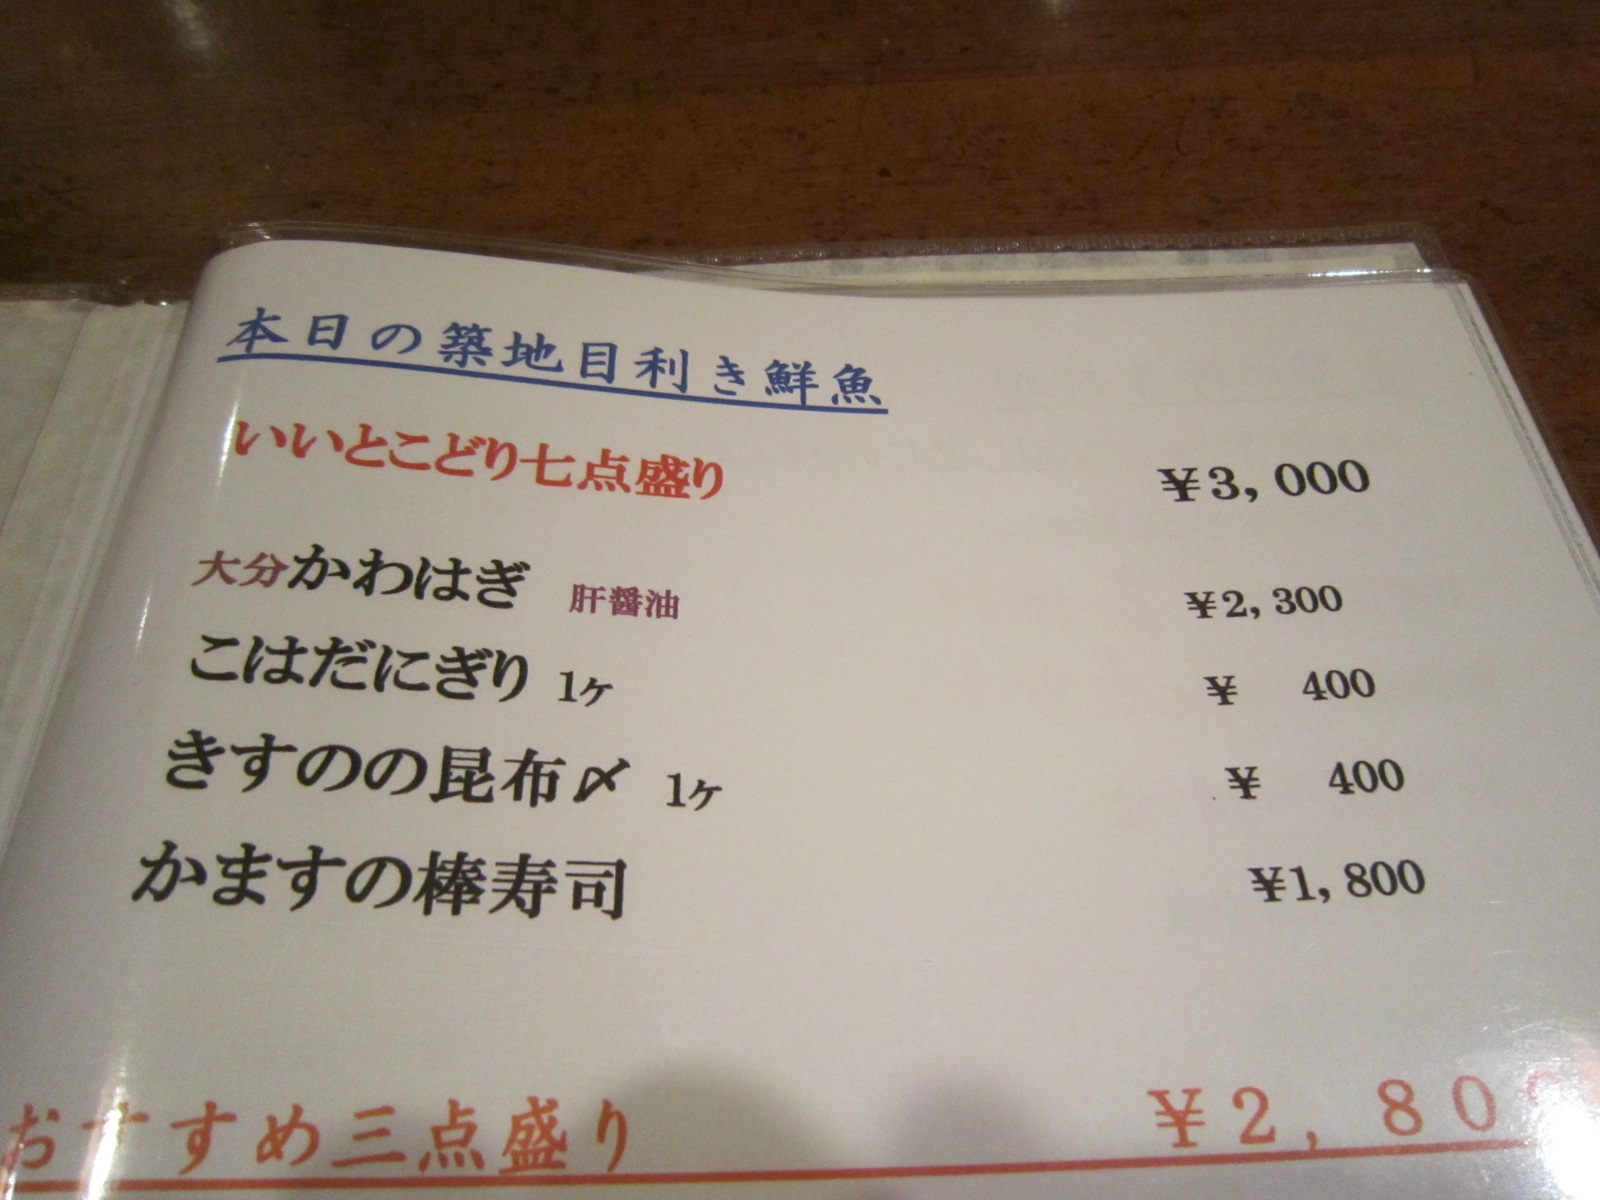 本日の築地目利き鮮魚
いいとこどり七点盛り ¥3,000
大分かわはぎ 肝醤油 ¥2,300
こはだにぎり 1ヶ ¥ 400
きすのの昆布〆 1ヶ ¥ 400
かますの棒寿司 ¥1,800
おすすめ三点盛り ¥2,80